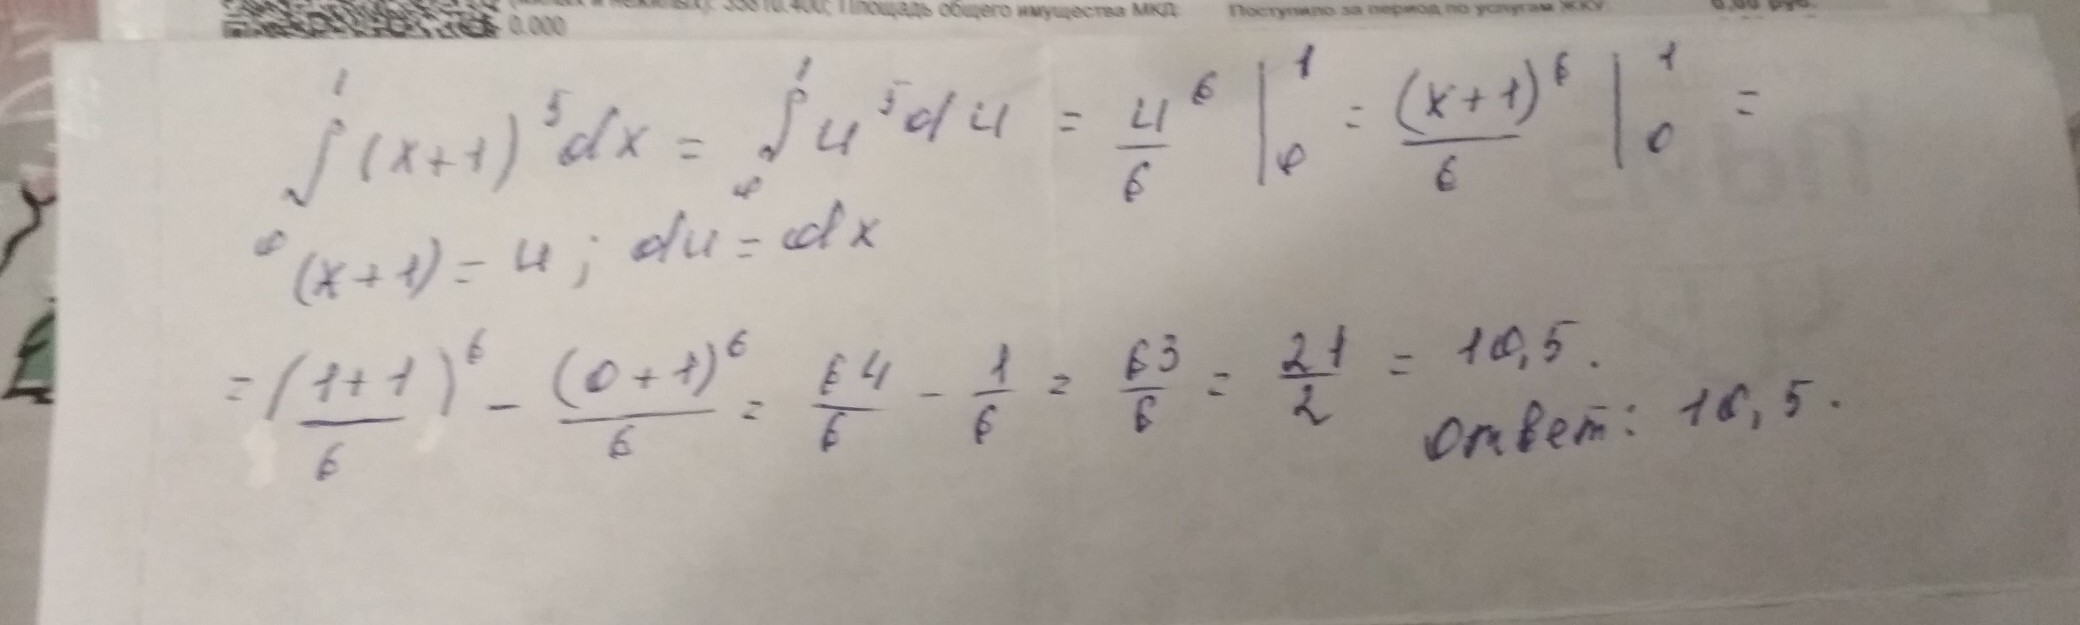 35810.400; Площадь общего имущества МКД: Поступило за период по услугам ЖКУ: 0,00 руб.
0.000
∫₀¹ (x+1)⁵dx = ∫₀¹ u⁵du = u⁶/6 |₀¹ = (x+1)⁶/6 |₀¹ =
(x+1) = u; du = dx
= (1+1)⁶/6 - (0+1)⁶/6 = 64/6 - 1/6 = 63/6 = 21/2 = 10,5.
Ответ: 10,5.